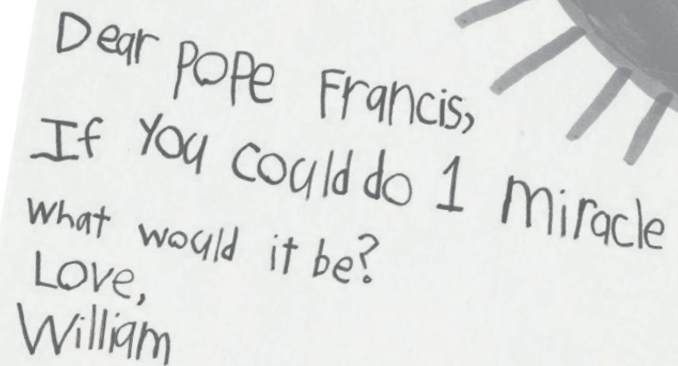 Dear POPe Francis,
If You could do 1 miracle
what would it be?
Love,
William